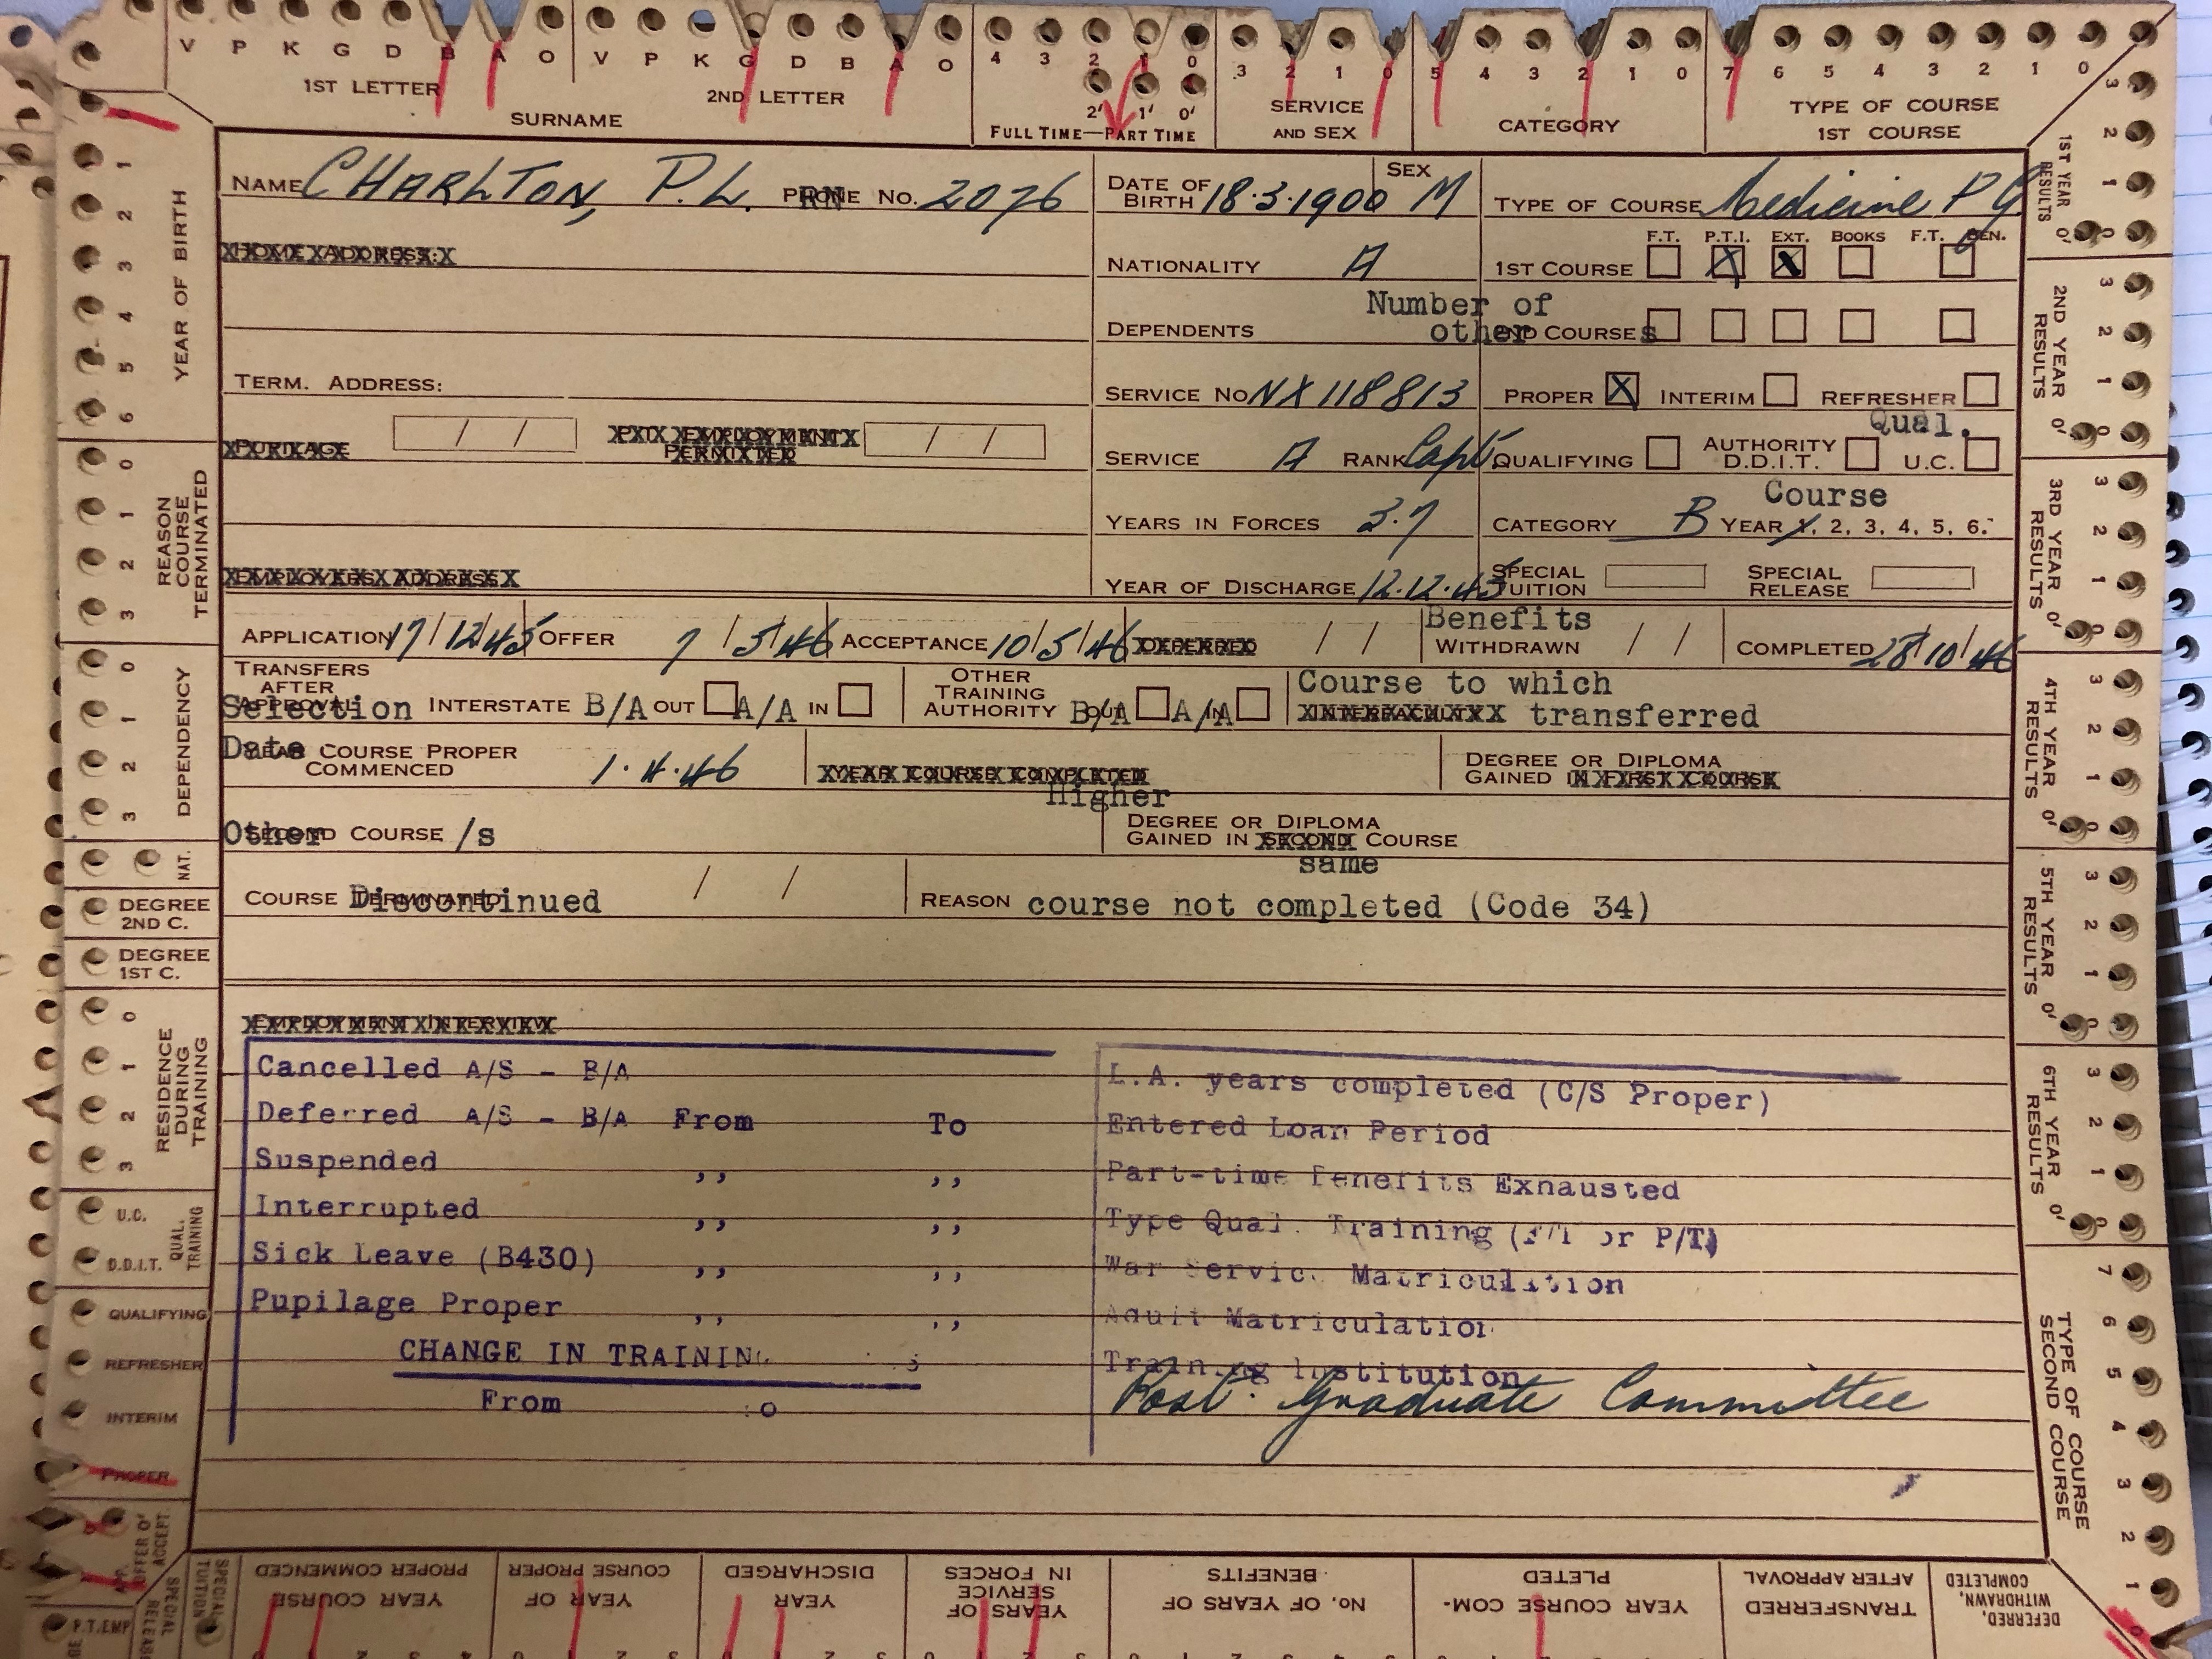 V P K G D B A O V P K G D B A O 4 3 2 1 0 3 2 1 0 5 4 3 2 1 0 7 6 5 4 3 2 1 0
1ST LETTER 2ND LETTER 2' 1' 0' SERVICE TYPE OF COURSE
SURNAME FULL TIME—PART TIME AND SEX CATEGORY 1ST COURSE
NAME CHARLTON, P.L. PHONE RN No. 2076 DATE OF BIRTH 18.3.1900 SEX M TYPE OF COURSE Medicine P G
HOME ADDRESS: NATIONALITY A 1ST COURSE F.T. P.T.I. X EXT. X BOOKS F.T. BEN.
DEPENDENTS Number of other COURSES
TERM. ADDRESS: SERVICE No NX 118813 PROPER X INTERIM REFRESHER
/ / PERMITTED / / SERVICE A RANK Capt. QUALIFYING AUTHORITY D.D.I.T. Qual. U.C.
YEARS IN FORCES 3.7 CATEGORY B Course YEAR 1, 2, 3, 4, 5, 6.
EMPLOYERS ADDRESS YEAR OF DISCHARGE 12.12.45 SPECIAL TUITION SPECIAL RELEASE
APPLICATION 17/12/45 OFFER 7/5/46 ACCEPTANCE 10/5/46 DEFERRED / / Benefits WITHDRAWN / / COMPLETED 28/10/46
TRANSFERS AFTER APPROVAL Selection INTERSTATE B/A OUT A/A IN OTHER TRAINING AUTHORITY B/A OUT A/A IN Course to which
transferred
Date YEAR COURSE PROPER COMMENCED 1.4.46 YEAR COURSE COMPLETED DEGREE OR DIPLOMA GAINED IN FIRST COURSE
Other SECOND COURSE /s Higher DEGREE OR DIPLOMA GAINED IN SECOND COURSE
same
COURSE TERMINATED Discontinued / / REASON course not completed (Code 34)
EMPLOYMENT INTERVIEW
Cancelled A/S - B/A
Deferred A/S - B/A From To
Suspended ,, ,,
Interrupted ,, ,,
Sick Leave (B430) ,, ,,
Pupilage Proper ,, ,,
CHANGE IN TRAINING
From
L.A. years completed (C/S Proper)
Entered Loan Period
Part-time Benefits Exhausted
Type Qual. Training (F/T or P/T)
War Service Matriculation
Adult Matriculation
Training Institution
Post. Graduate Committee
1 2 3 4 5 6 YEAR OF BIRTH
0 1 2 3 REASON COURSE TERMINATED
0 1 2 3 DEPENDENCY
NAT.
DEGREE 2ND C.
DEGREE 1ST C.
0 1 2 3 RESIDENCE DURING TRAINING
U.C.
D.D.I.T. QUAL. TRAINING
QUALIFYING
REFRESHER
INTERIM
PROPER
APP. OFFER OF ACCEPT
SPECIAL RELEASE
SPECIAL TUITION
P.T. EMP
3 2 1 0 0' 1ST YEAR RESULTS
3 2 1 0 0' 2ND YEAR RESULTS
3 2 1 0 0' 3RD YEAR RESULTS
3 2 1 0 0' 4TH YEAR RESULTS
3 2 1 0 0' 5TH YEAR RESULTS
3 2 1 0 0' 6TH YEAR RESULTS
7 6 5 4 3 2 1 TYPE OF COURSE SECOND COURSE
DEFERRED, WITHDRAWN, COMPLETED
TRANSFERRED AFTER APPROVAL
YEAR COURSE COMPLETED
No. OF YEARS OF BENEFITS
YEARS OF SERVICE IN FORCES
YEAR DISCHARGED
YEAR OF COURSE PROPER
YEAR COURSE PROPER COMMENCED